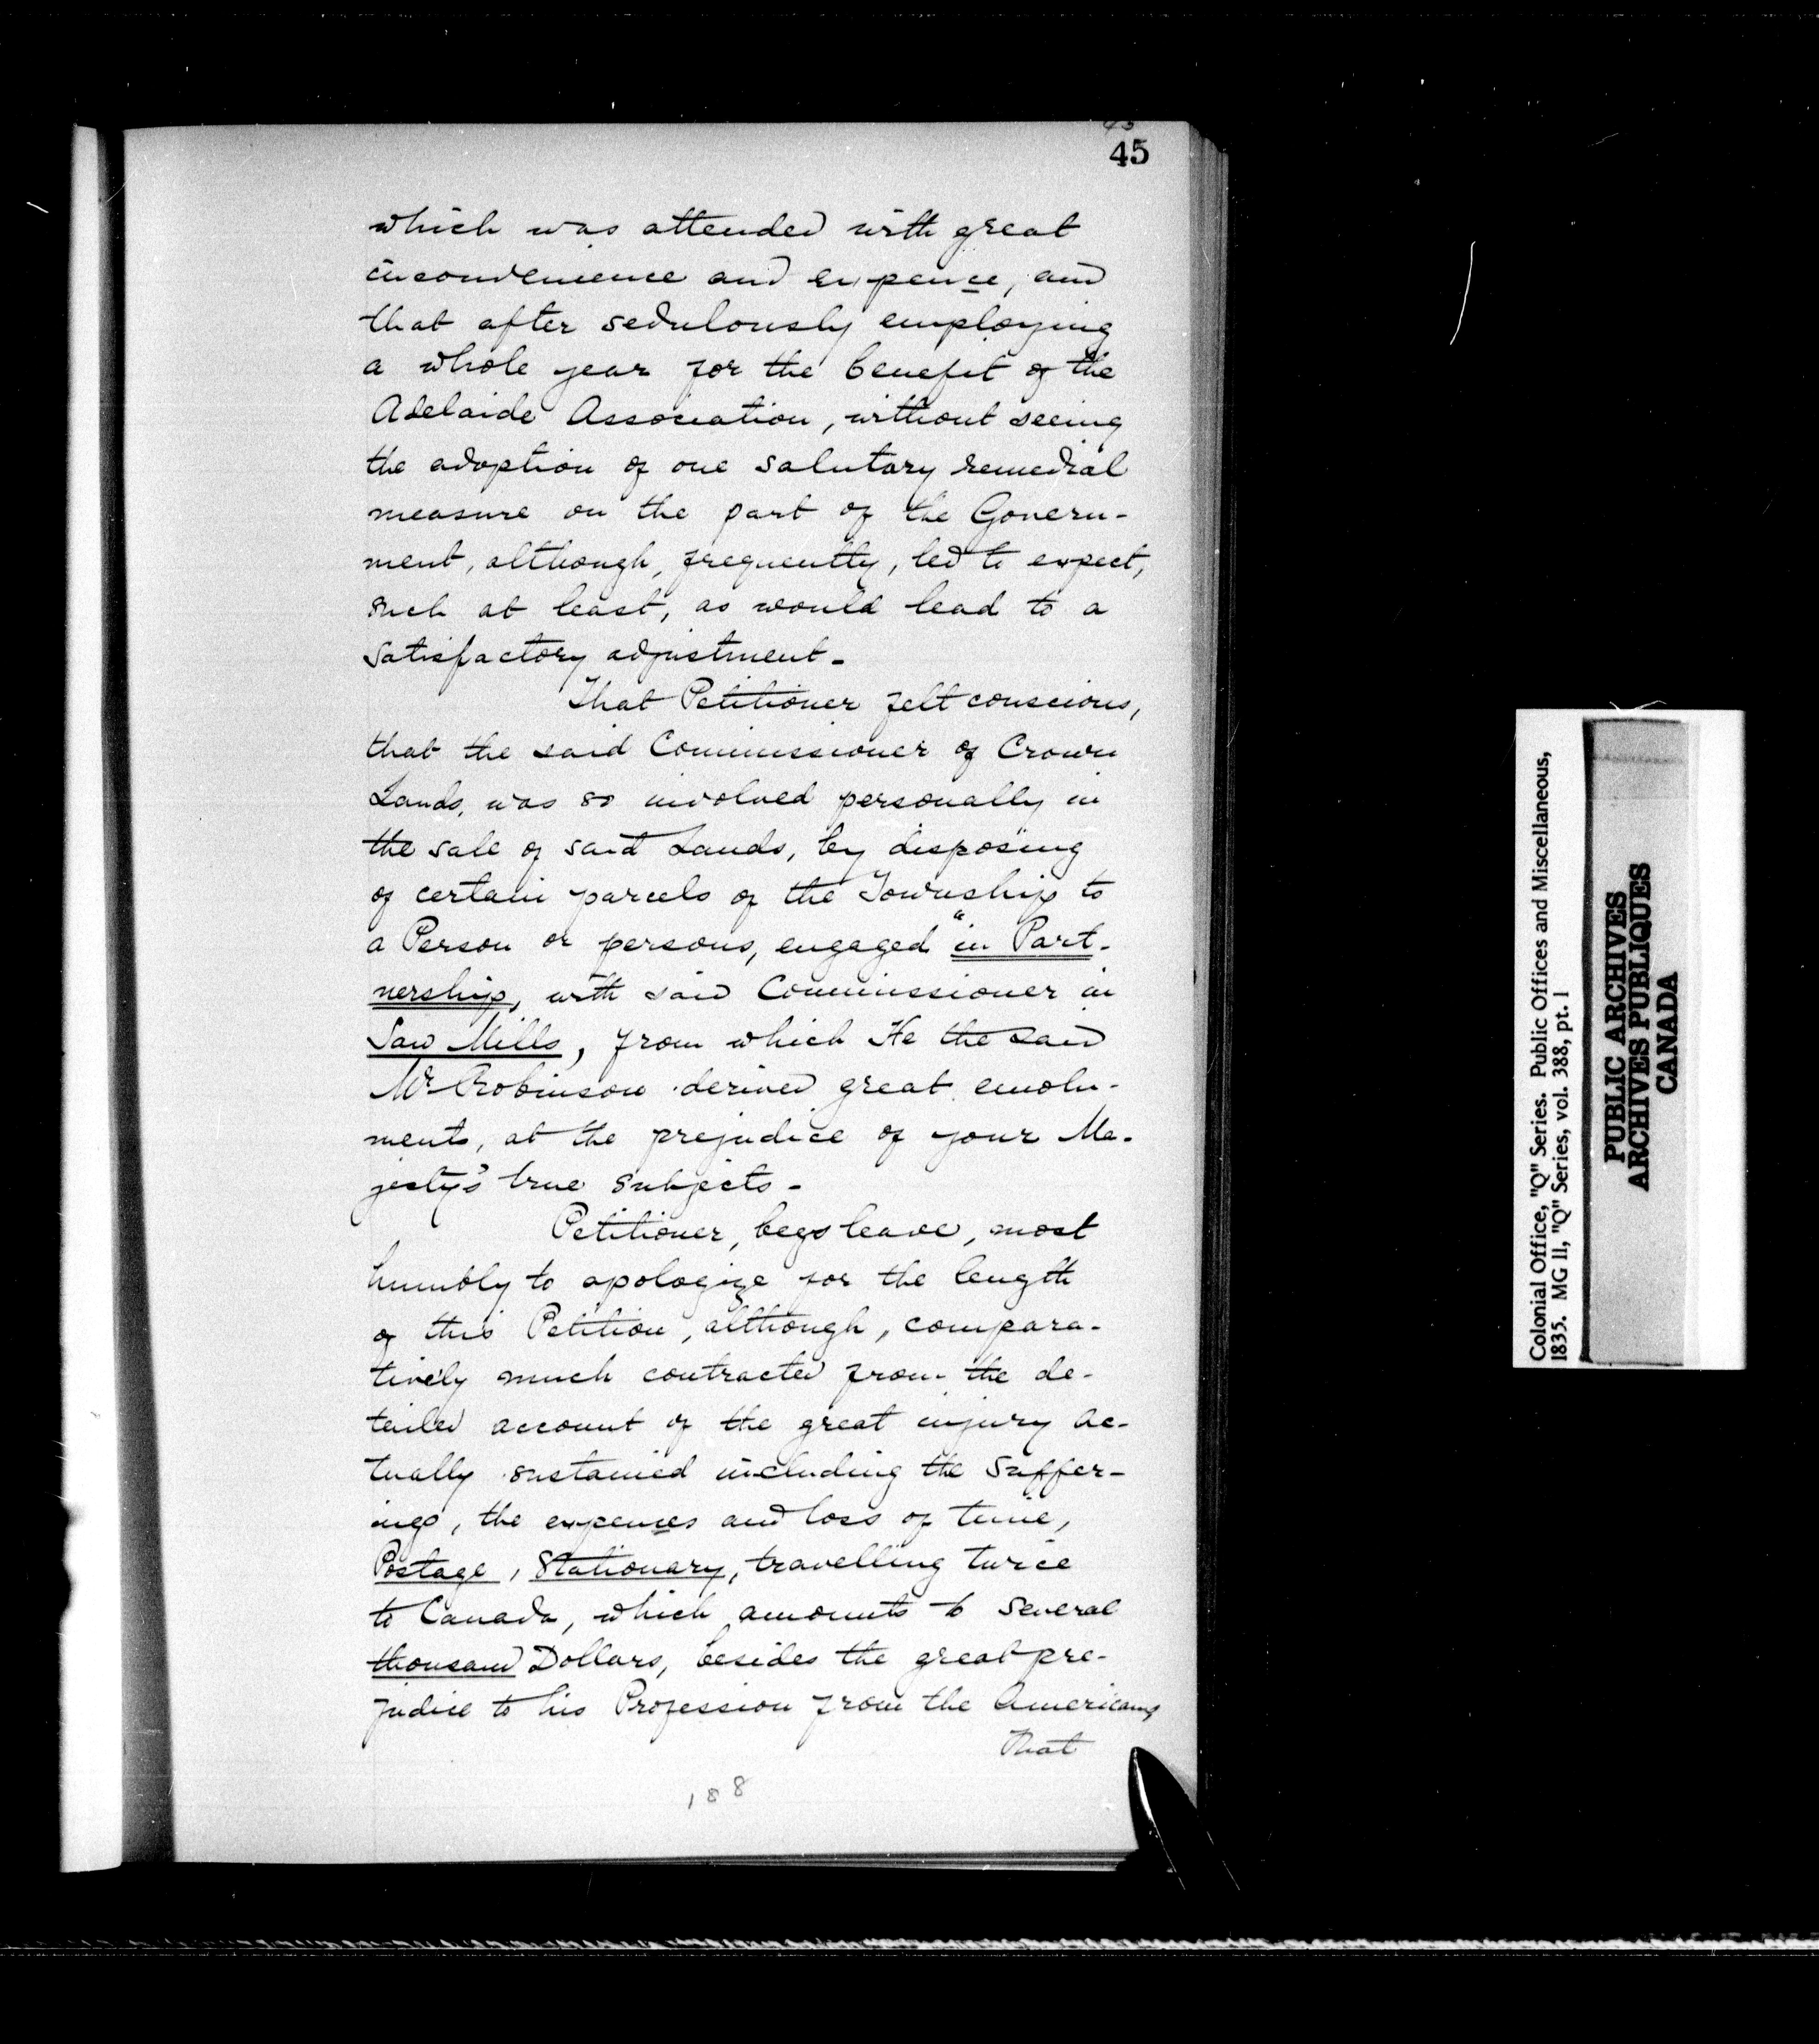 45
45
which was attended with great
inconvenience and expence, and
that after sedulously employing
a whole year for the benefit of the
Adelaide Association, without seeing
the adoption of one salutary remedial
measure on the part of the Govern-
ment, although, frequently, led to expect,
such at least, as would lead to a
satisfactory adjustment-
That Petitioner felt conscious,
that the said Commissioner of Crown
Lands, was so involved personally in
the sale of said Lands, by disposing
of certain parcels of the Township to
a Person or persons, engaged "in Part-
nership, with said Commissioner in
Saw Mills, from which He the said
Mr Robinson derived great emolu-
ments, at the prejudice of your Ma-
jesty's true subjects-
Petitioner, begs leave, most
humbly to apologize for the length
of this Petition, although, compara-
tively much contracted from the de-
tailed account of the great injury ac-
tually sustained including the suffer-
ings, the expences and loss of time,
Postage, Stationary, travelling twice
to Canada, which amounts to several
thousand Dollars, besides the great pre-
judice to his Profession from the Americans
That
188
Colonial Office, "Q" Series. Public Offices and Miscellaneous,
1835. MG 11, "Q" Series, vol. 388, pt. 1
PUBLIC ARCHIVES
ARCHIVES PUBLIQUES
CANADA